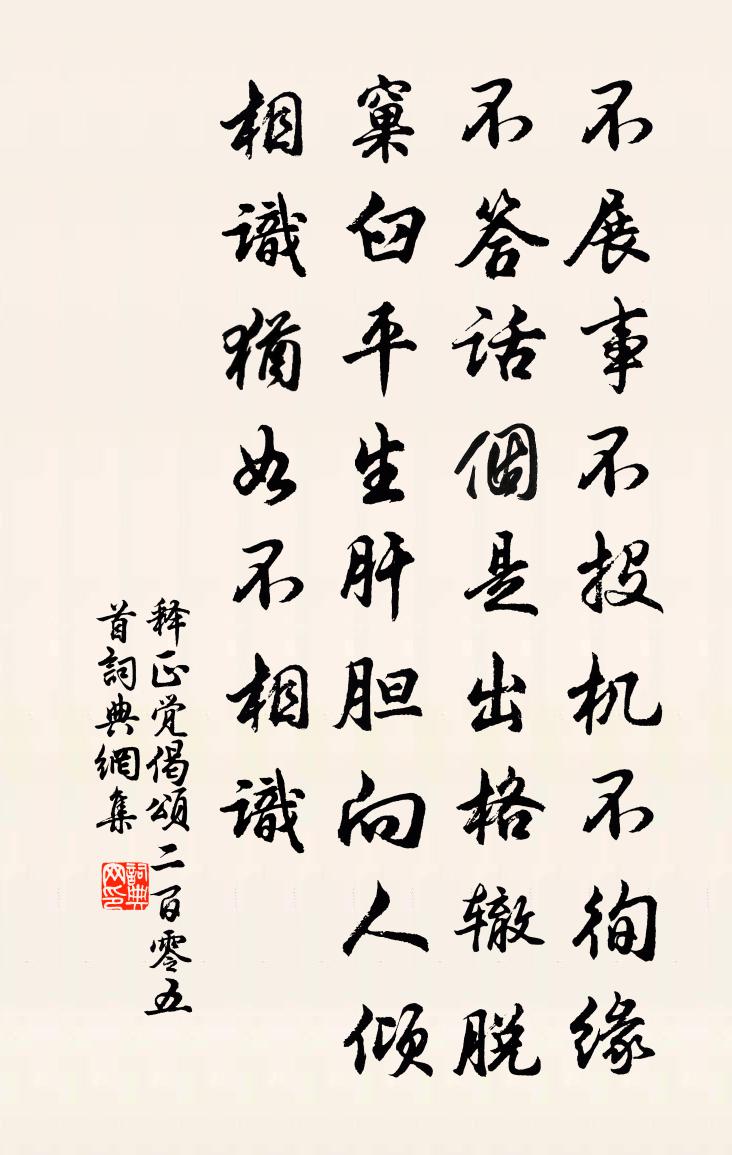 不展事不投机不徇缘
不答话個是出格辙脱
窠臼平生肝胆向人倾
相識猶如不相識
释正觉偈頌二百零五
首詞典網集
詞典
网印